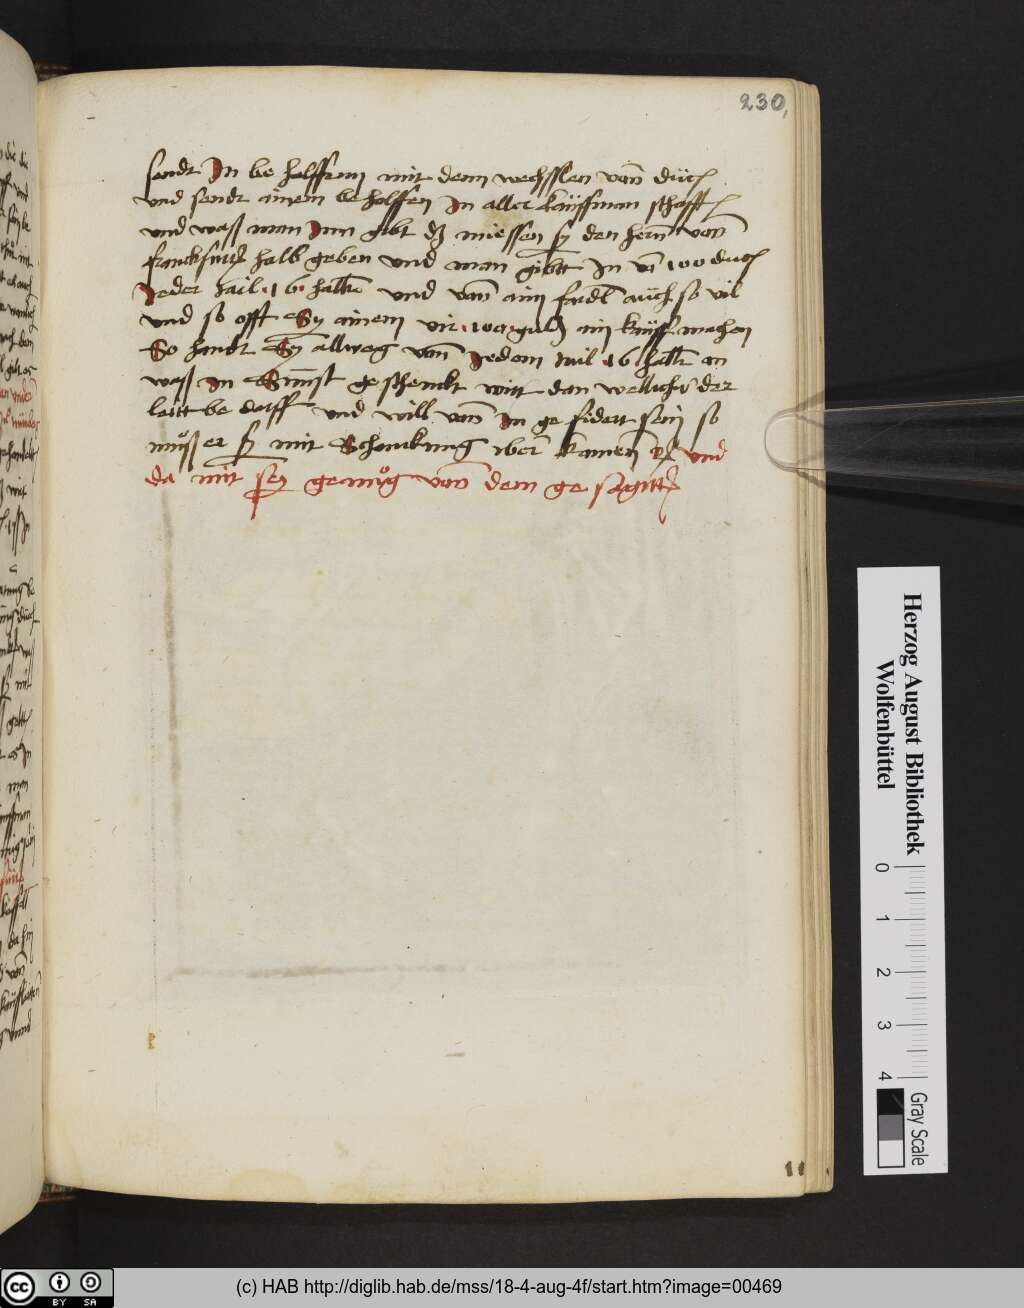 230
sendt In be holffenn mit denn wechsslen vonn duch
vnd sendt ainem be holffen In aller kauffman schafft
vnd wass man Inn gibt dz miessen sy den hern von
franckfurtt halb geben vnd man gibt In vo 100 duch
Jeder hail 16 haller vnd von ain fardl auch so vil
vnd so offt Sy ainem vir 100 guldn ain kauff machen
So handt Sy allweg von Jedem mil 16 haller on
wass In Sunst ge schenckt wirt dan wellicher der
leitt be darff vnd will von In ge fidert sein so
muss er sy mit Schenckung iber kamen vnd
da mit sey genuog von dem ge sagtt
11
Herzog August Bibliothek
Wolfenbüttel
0 1 2 3 4
Gray Scale
(c) HAB http://diglib.hab.de/mss/18-4-aug-4f/start.htm?image=00469
cc BY SA